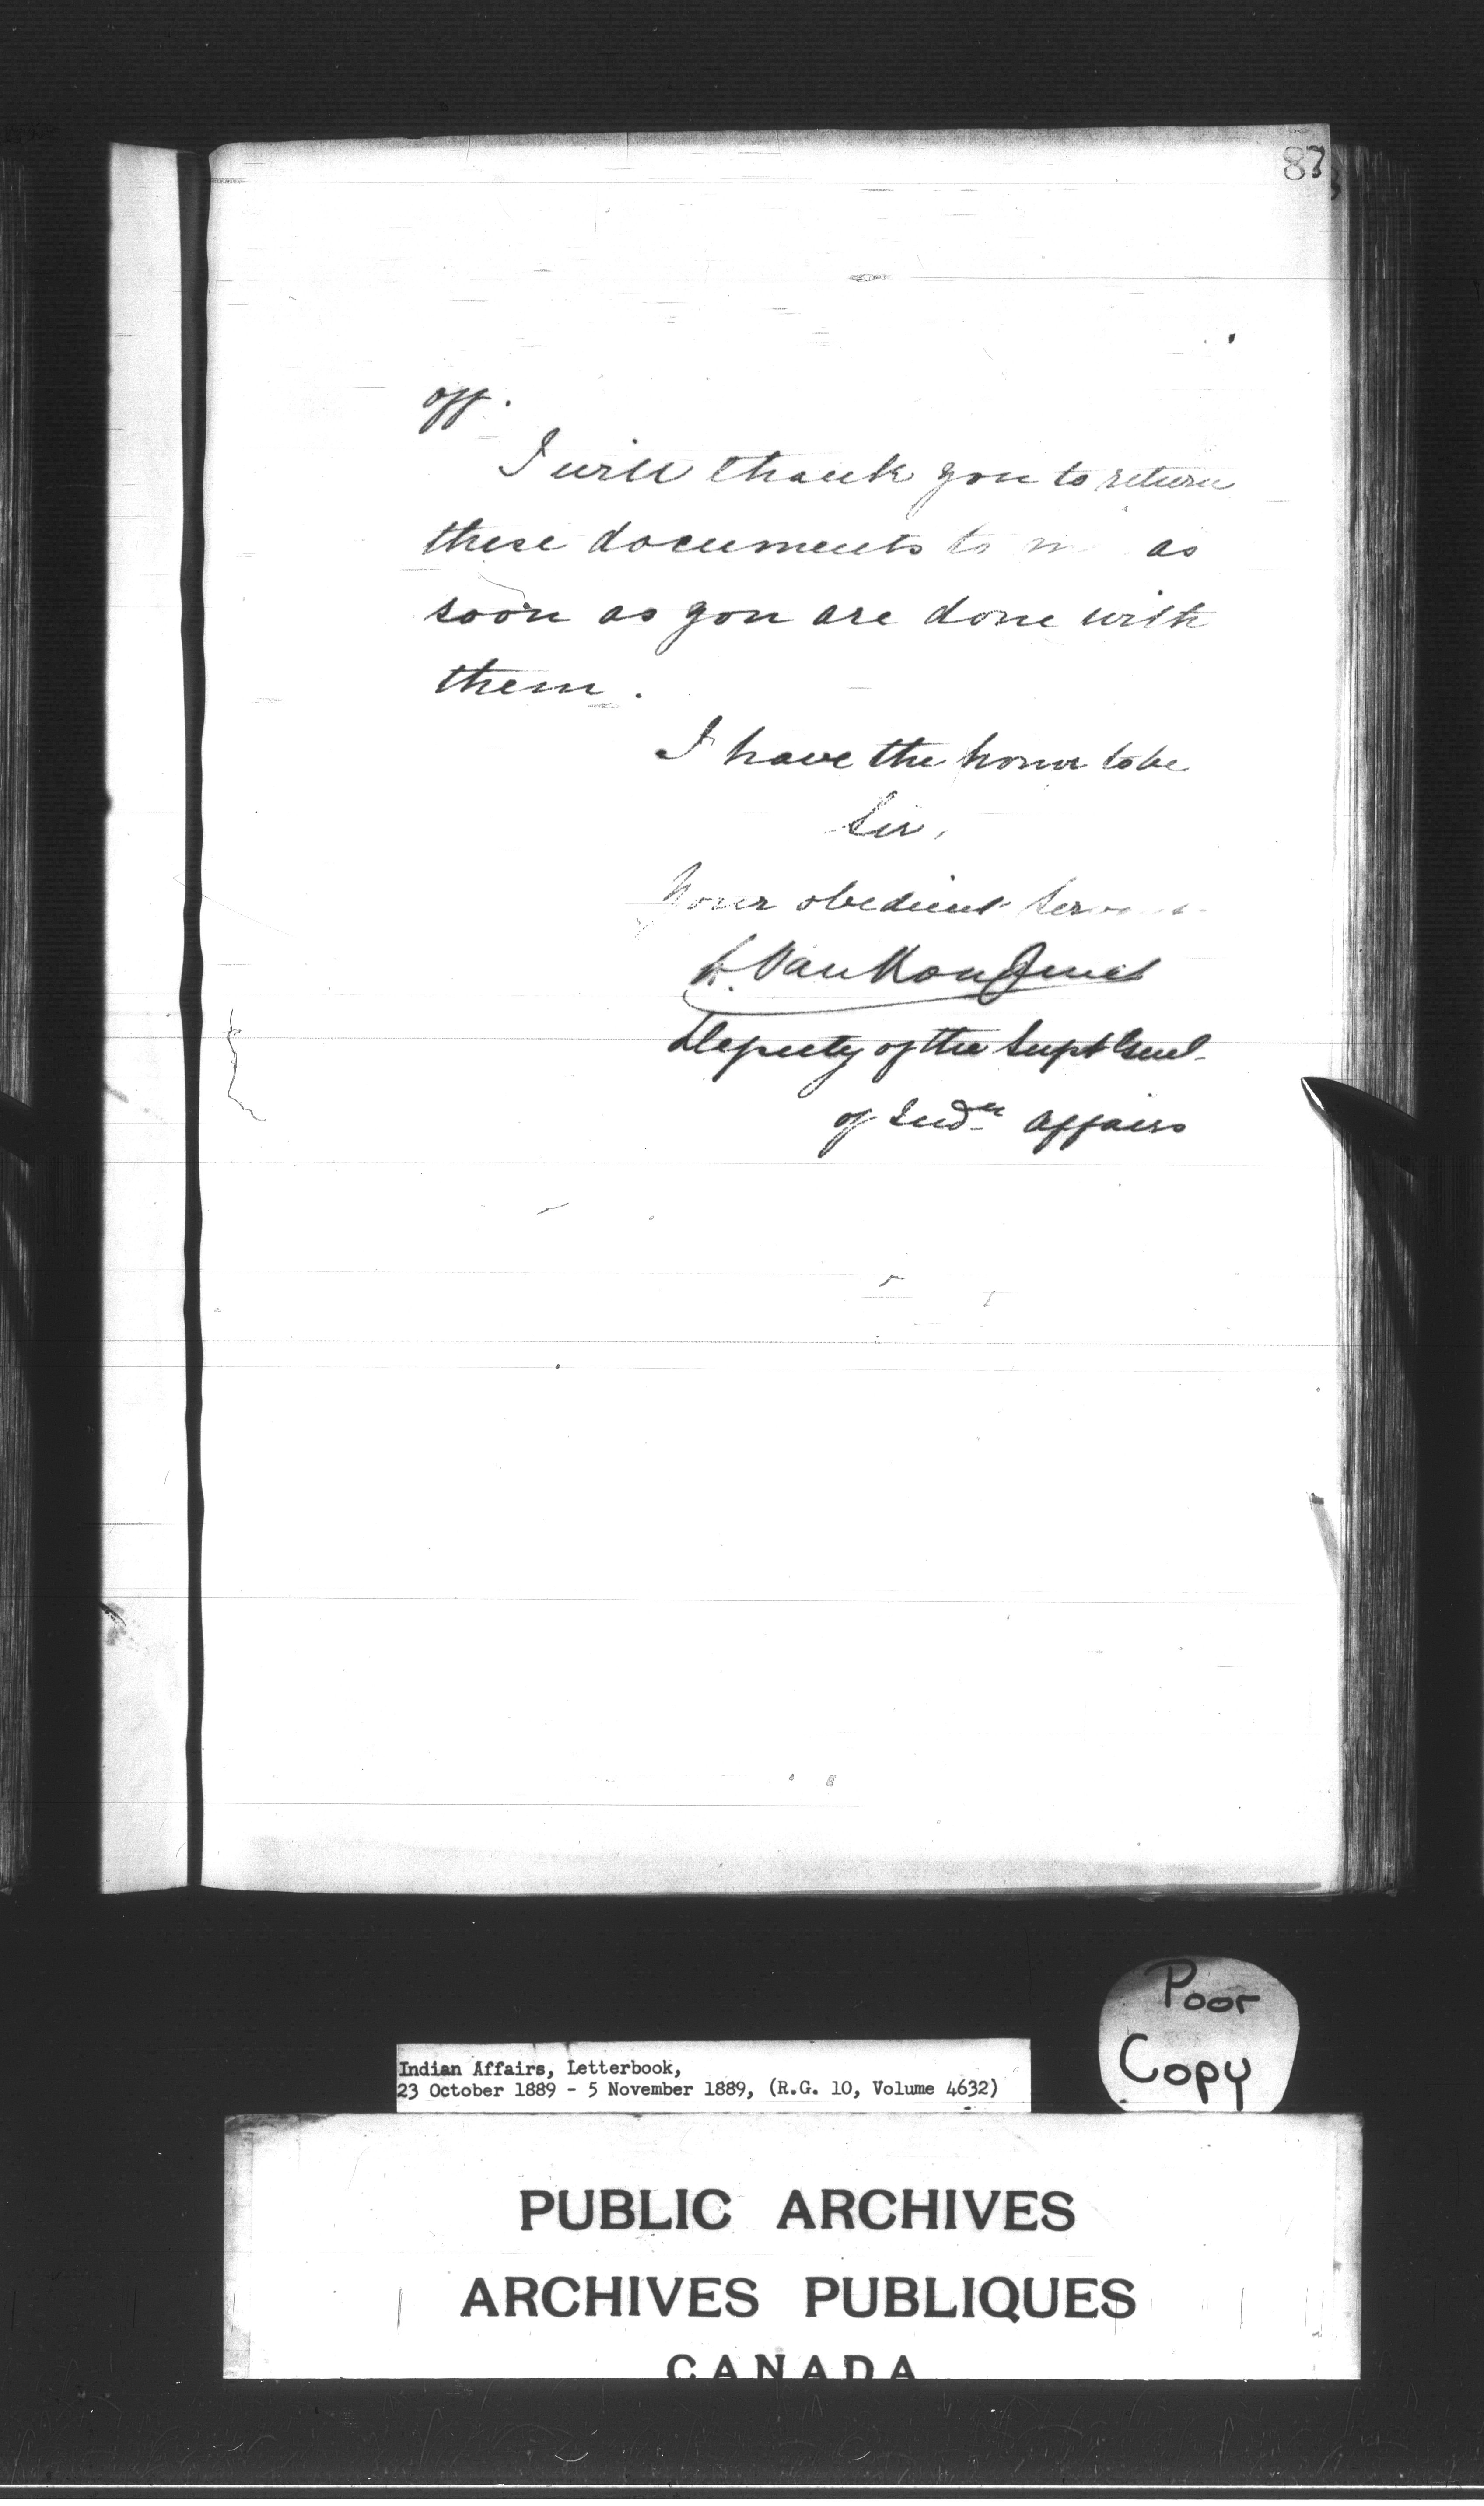 87
off.
I will thank you to return
these documents to m as
soon as you are done with
them.
I have the honor to be
Sir,
Your obedient
L. VanKoughnet
Deputy of the Supt Genl
of Indn Affairs
Poor
Copy
Indian Affairs, Letterbook,
23 October 1889 - 5 November 1889, (R.G. 10, Volume 4632)
PUBLIC ARCHIVES
ARCHIVES PUBLIQUES
CANADA